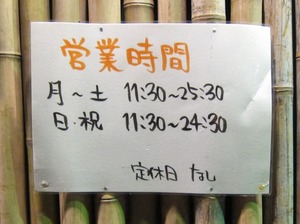 営業時間
月～土 11:30～25:30
日・祝 11:30～24:30
定休日 なし